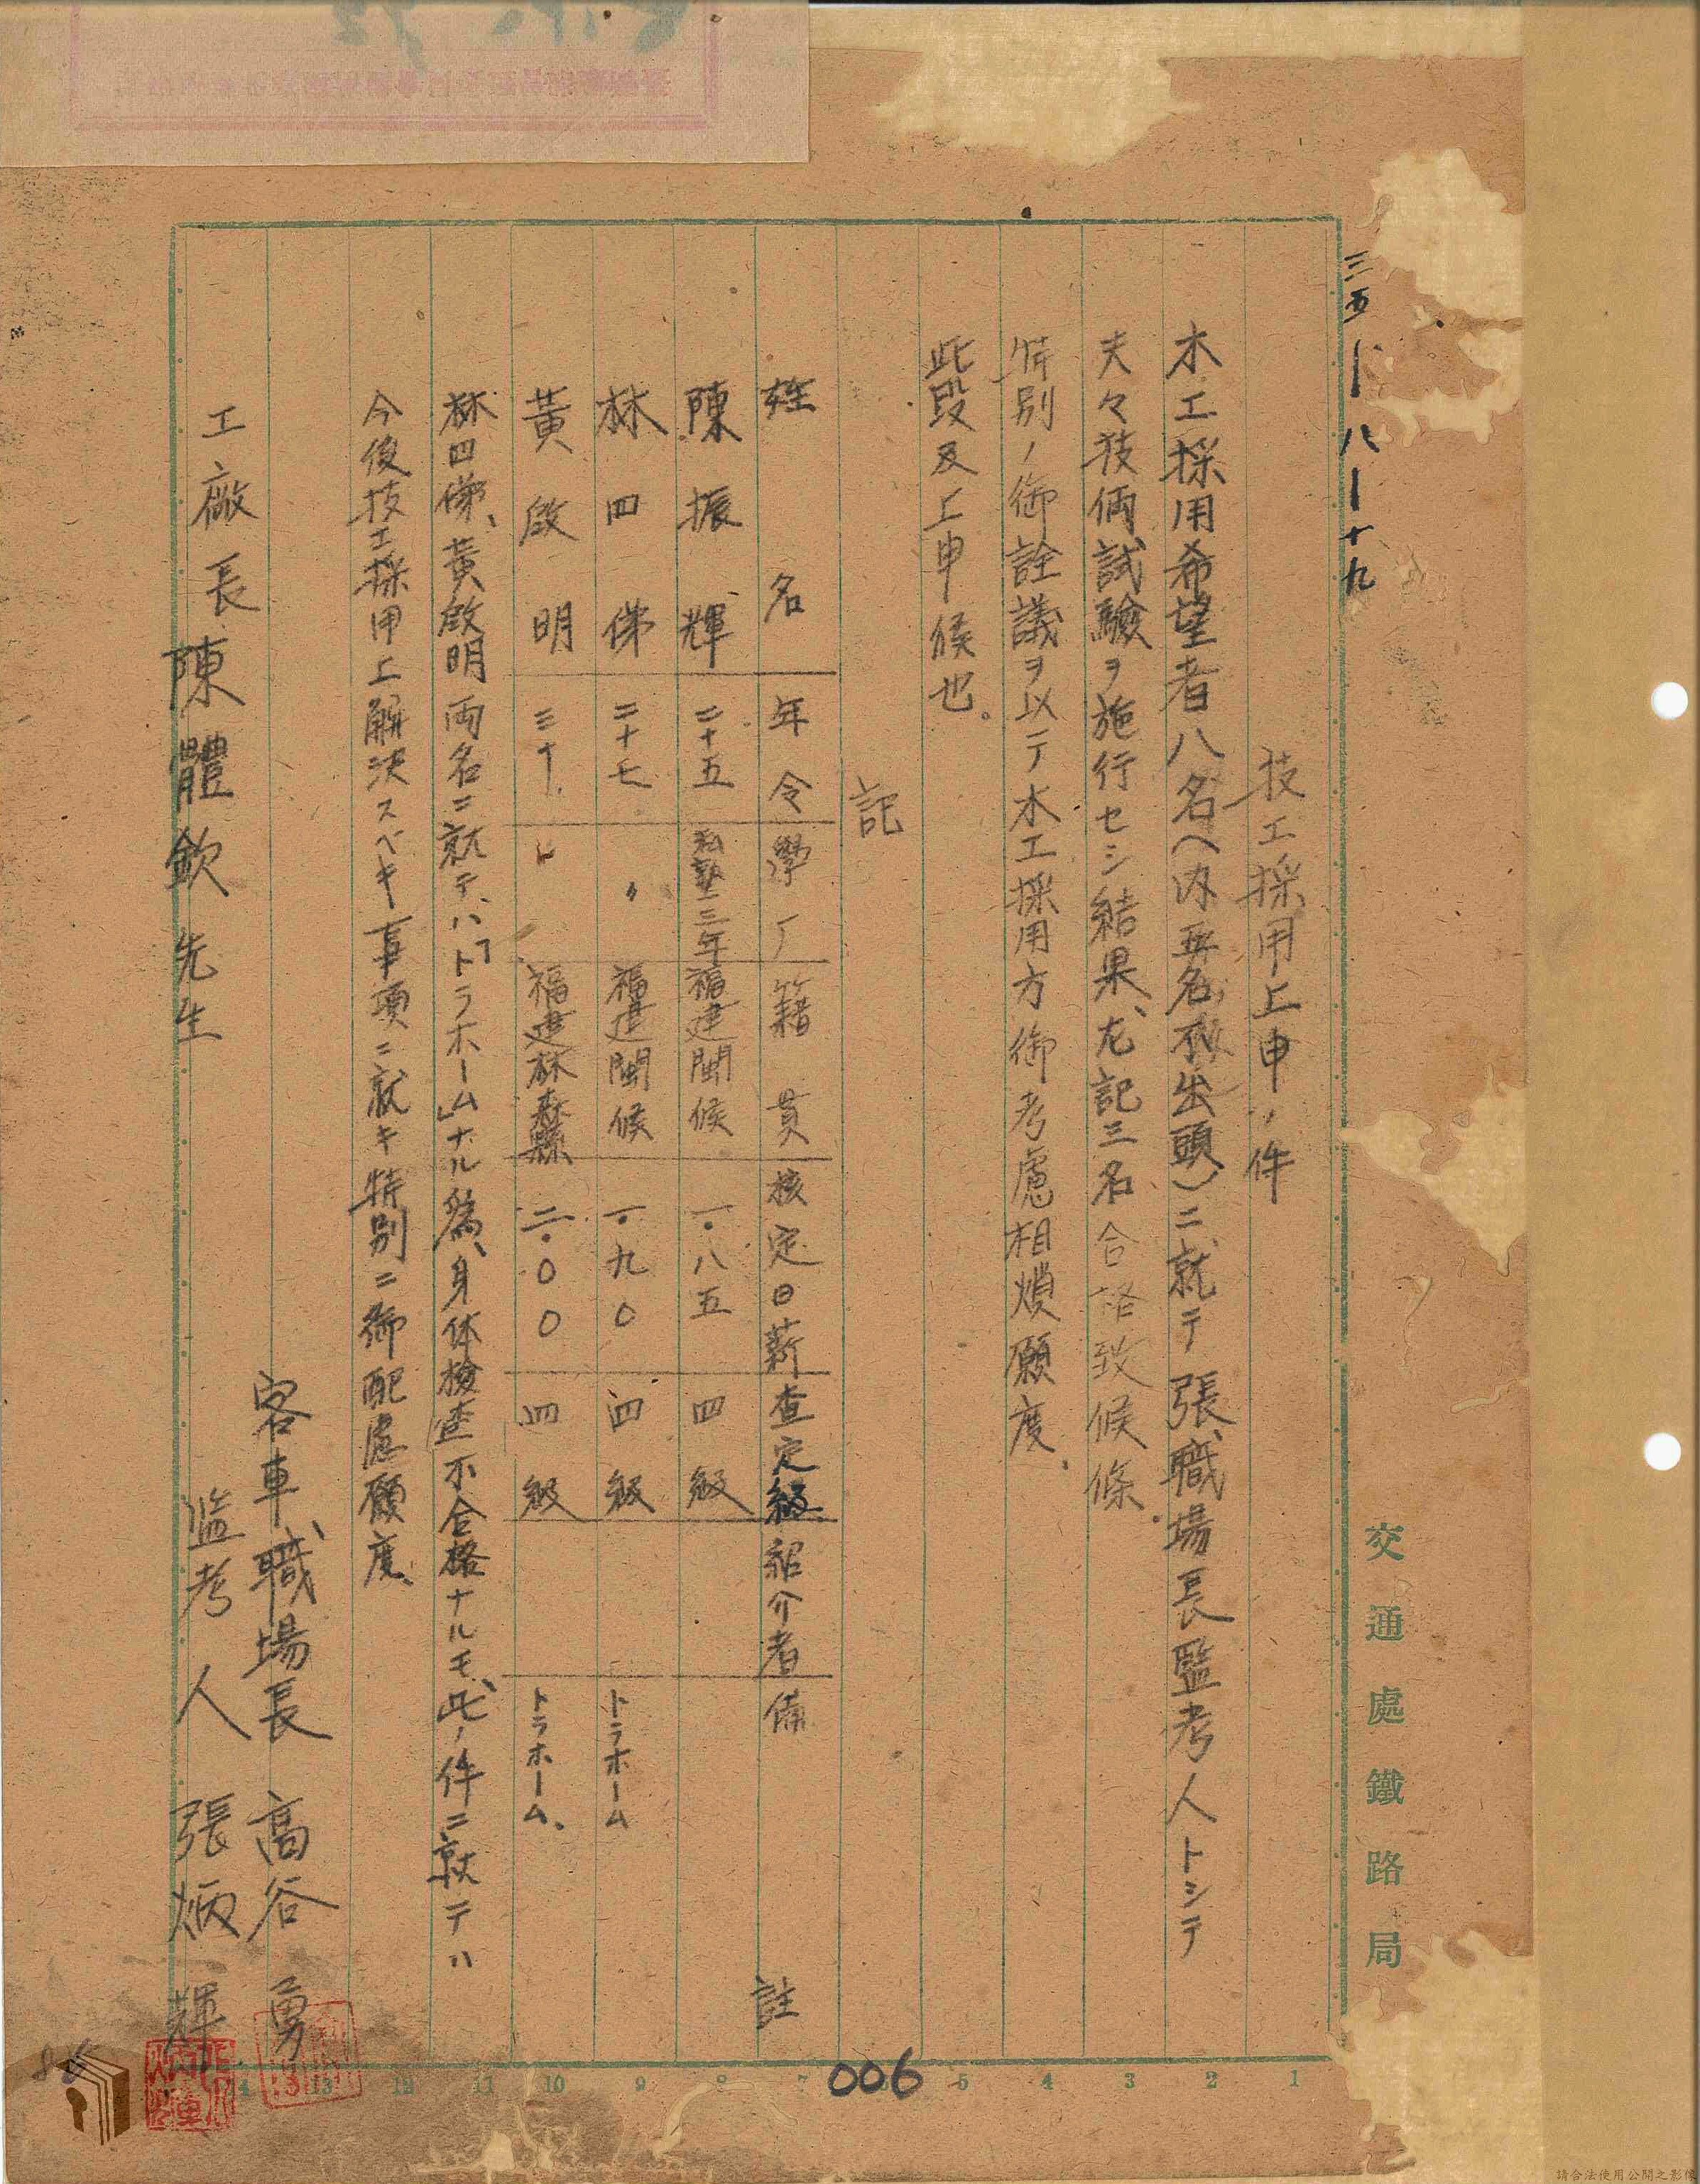 三五―八―十九
交通處鐵路局
技工採用上申ノ件
木工採用希望者八名(内五名不出頭)ニ就テ張職場長監考人トシテ
夫々技倆試験ヲ施行セシ結果、左記三名合格致候條
特別ノ御詮議ヲ以テ木工採用方御考慮相煩願度
此段及上申候也。
記
姓名 年令 學厂 籍貫 核定日薪 查定級 紹介者 備註
陳振輝 二十五 私塾三年 福建閩候 一.八五 四級
林四俤 二十七 〃 福建閩候 一.九〇 四級 トラホーム
黃啟明 三十 〃 福建林森縣 二.〇〇 四級 トラホーム、
林四俤、黃啟明両名ニ就テハ「トラホーム」ナル為、身体檢查不合格ナルモ、此ノ件ニ就テハ
今後技工採用上解決スベキ事項ニ就キ特別ニ御配慮願度、
客車職場長 高谷勇
监考人 張炳輝
工廠長 陳體欽先生
006
1 2 3 4 5 7 8 9 10 11 12 13 14
張炳輝
請合法使用公開之影像